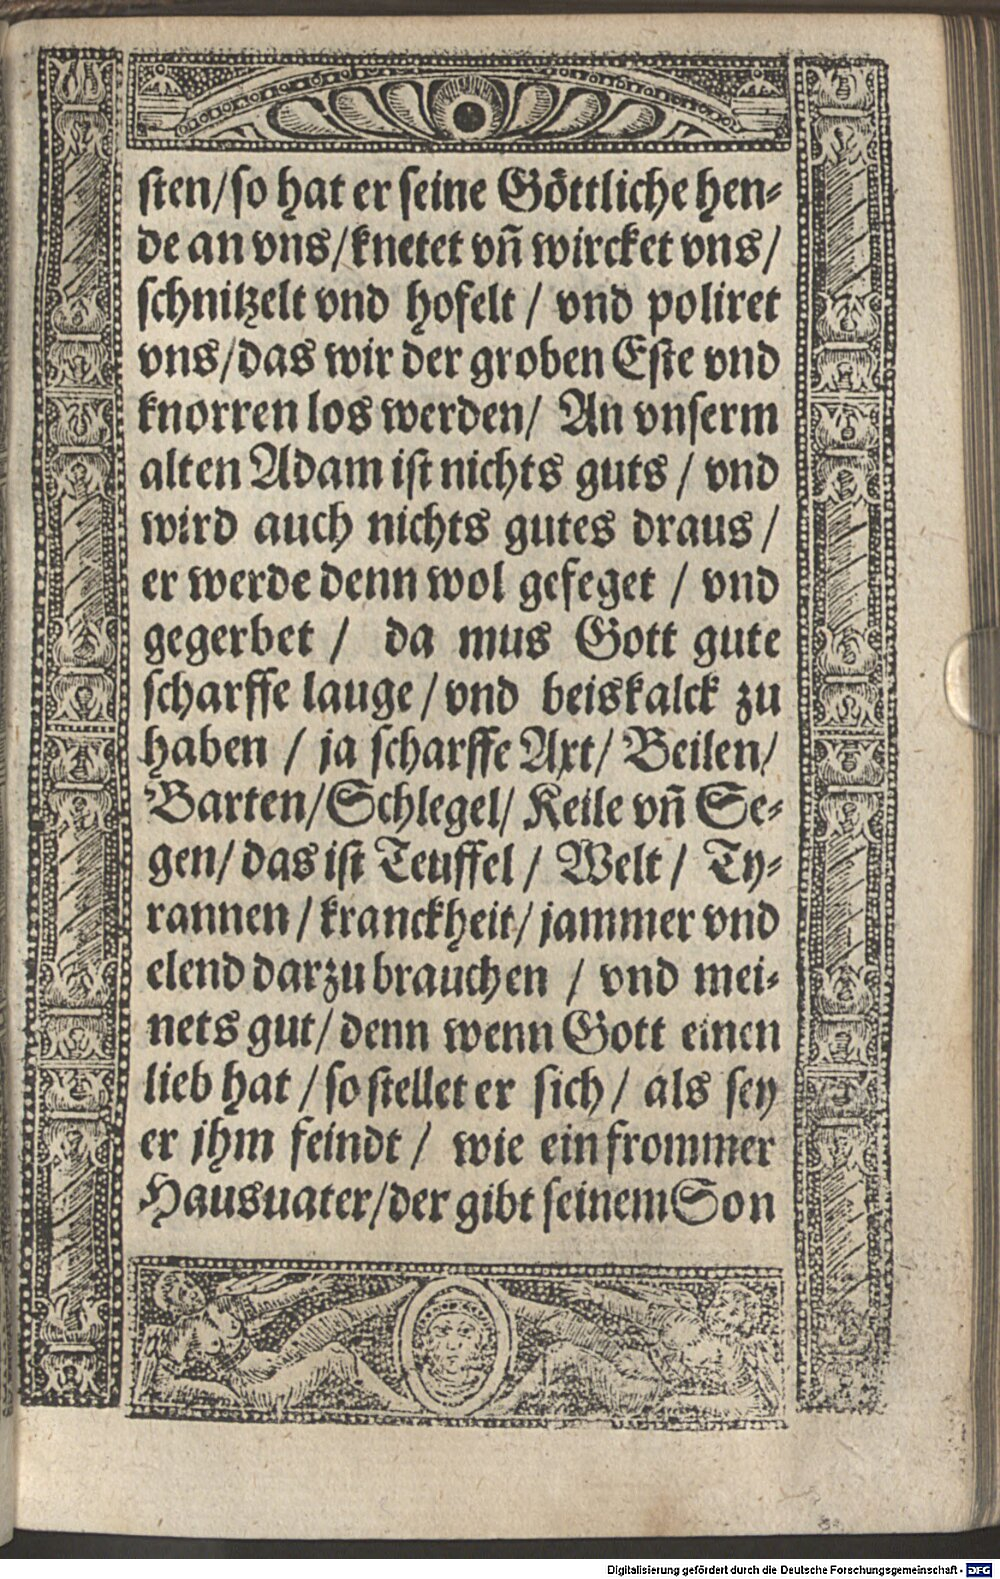 sten/so hat er seine Göttliche hen⸗
de an vns/knetet vñ wircket vns/
schnitzelt vnd hofelt / vnd poliret
vns/das wir der groben Este vnd
knorren los werden/ An vnserm
alten Adam ist nichts guts / vnd
wird auch nichts gutes draus /
er werde denn wol gefeget / vnd
gegerbet / da mus Gott gute
scharffe lauge/vnd beiskalck zu
haben / ja scharffe Axt/ Beilen/
Barten/Schlegel/ Keile vñ Se⸗
gen/das ist Teuffel / Welt / Ty⸗
rannen/kranckheit/jammer vnd
elend darzu brauchen / vnd mei⸗
nets gut/denn wenn Gott einen
lieb hat /so stellet er sich/ als sey
er jhm feindt / wie ein frommer
Hausuater/der gibt seinem Son
Digitalisierung gefördert durch die Deutsche Forschungsgemeinschaft - DFG